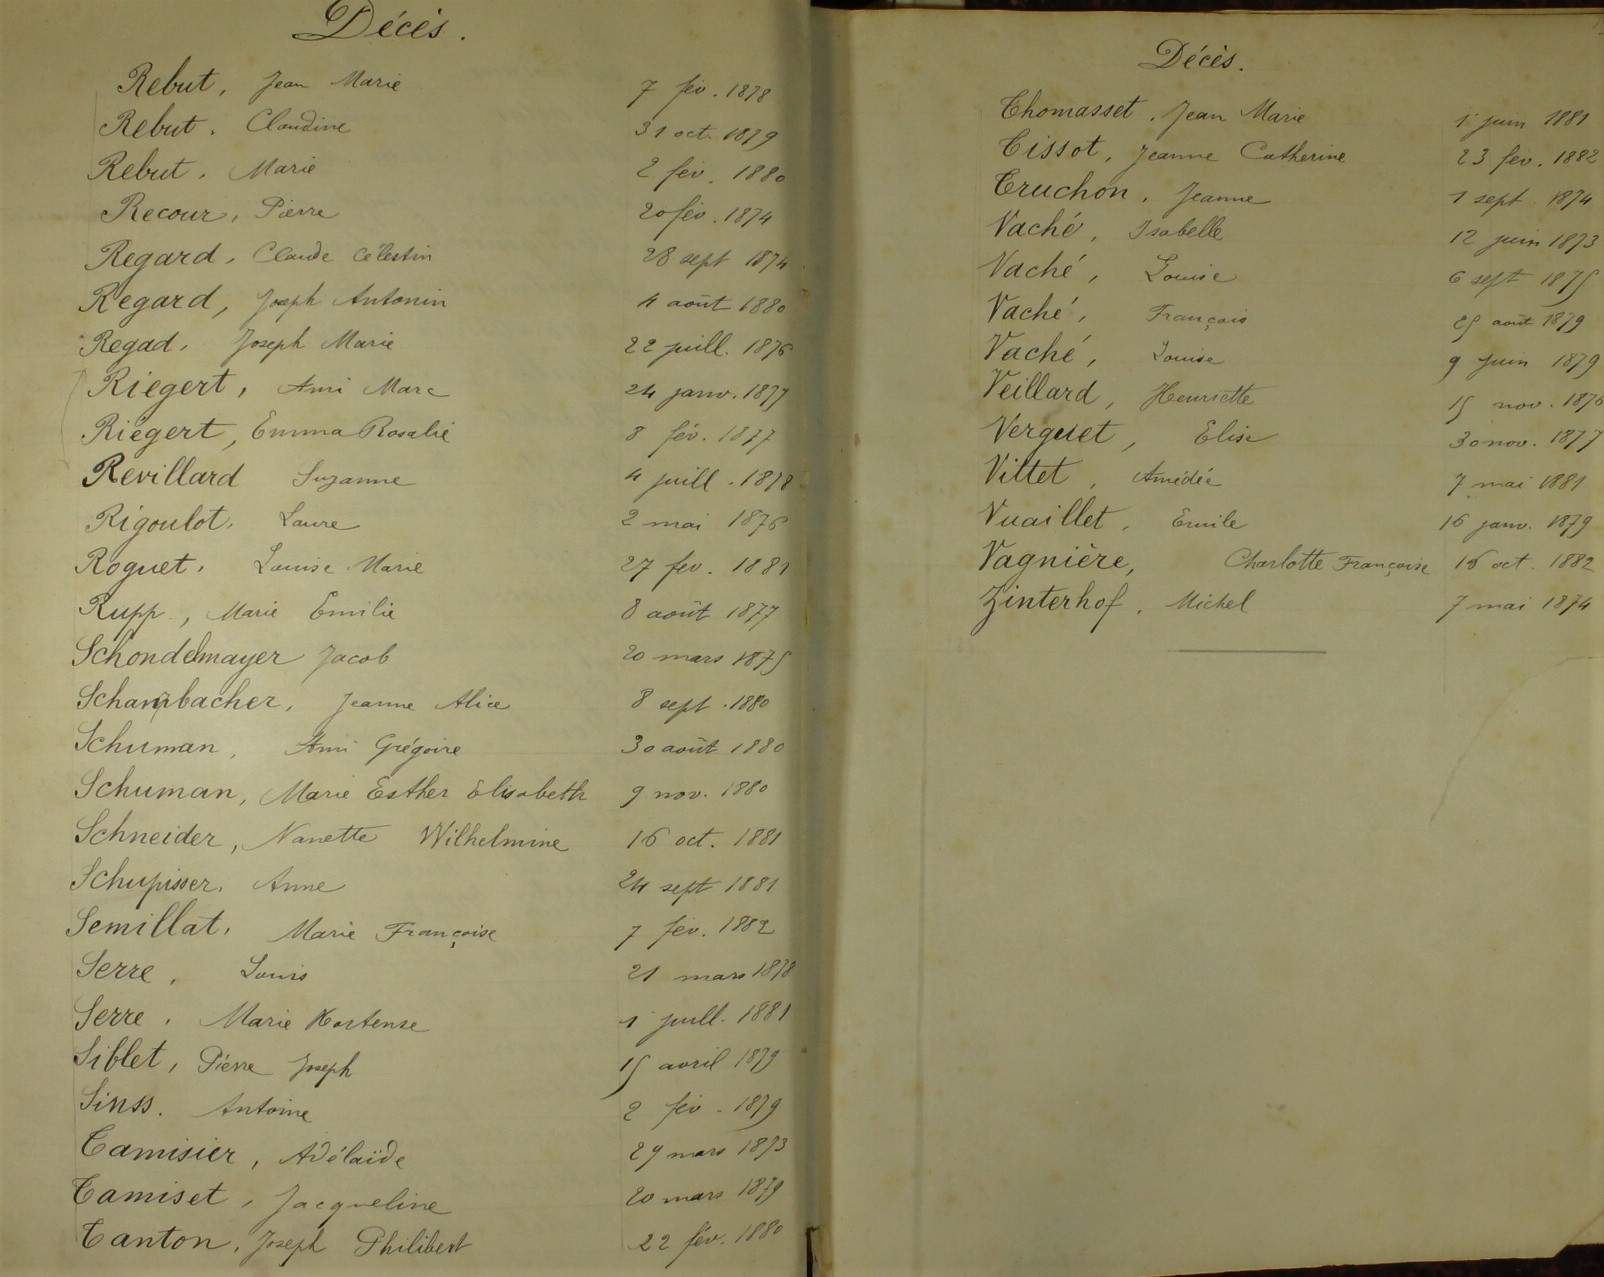 Décès.
Rebut, Jean Marie 7 fév. 1878
Rebut. Claudine 31 oct. 1879
Rebut. Marie 2 fév. 1880
Recour, Pierre 20 fév. 1874
Regard, Claude Célestin 28 sept 1874
Regard, Joseph Antonin 4 août 1880
Regad, Joseph Marie 22 juill. 1876
Riegert, Ami Marc 24 janv. 1877
Riegert, Emma Rosalie 8 fév. 1877
Revillard Suzanne 4 juill. 1878
Rigoulot. Laure 2 mai 1876
Roguet. Louise Marie 27 fev. 1881
Rupp, Marie Emilie 8 août 1877
Schondelmayer Jacob 20 mars 1875
Schambacher, Jeanne Alice 8 sept. 1880
Schuman, Ami Grégoire 30 août 1880
Schuman, Marie Esther Elisabeth 9 nov. 1880
Schneider, Nanette Wilhelmine 16 oct. 1881
Schupisser. Anne 24 sept 1881
Semillat. Marie Françoise 7 fév. 1882
Serre, Louis 21 mars 1878
Serre. Marie Hortense 1 juill. 1881
Siblet, Pierre Joseph 15 avril 1879
Sinss. Antoine 2 fév. 1879
Tamisier, Adélaïde 29 mars 1873
Tamiset, Jacqueline 20 mars 1879
Tanton, Joseph Philibert 22 fév. 1880
Décès.
Thomasset, Jean Marie 1 juin 1881
Tissot, Jeanne Catherine 23 fév. 1882
Truchon, Jeanne 1 sept 1874
Vaché, Isabelle 12 juin 1873
Vaché, Louise 6 sept 1875
Vaché, François 25 août 1879
Vaché, Louise 9 juin 1879
Veillard, Henriette 15 nov. 1876
Verguet, Elise 30 nov. 1877
Vittet, Amédée 7 mai 1881
Vuaillet, Emile 16 janv. 1879
Vagnière, Charlotte Françoise 16 oct. 1882
Zinterhof, Michel 7 mai 1874